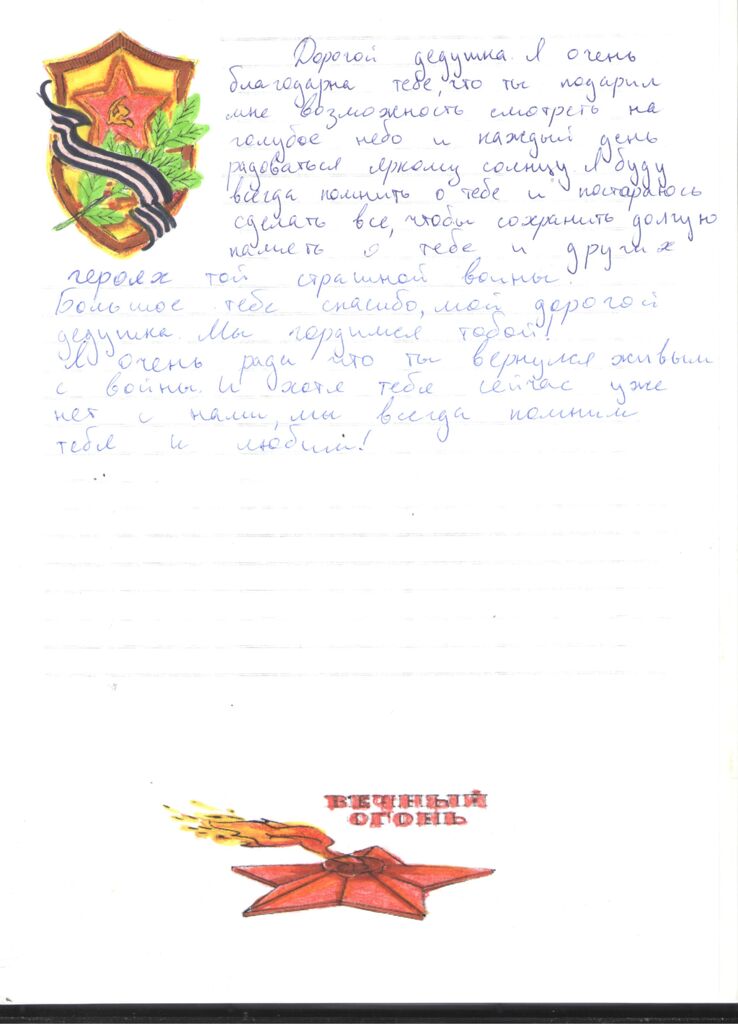 Дорогой дедушка. Я очень
благодарна тебе, что ты подарил
мне возможность смотреть на
голубое небо и каждый день
радоваться яркому солнцу. Я буду
всегда помнить о тебе и постараюсь
сделать все, чтобы сохранить долгую
память о тебе и других
героях той страшной войны.
Большое тебе спасибо, мой дорогой
дедушка. Мы гордимся тобой!
Я очень рада что ты вернулся живым
с войны. И хотя тебя сейчас уже
нет с нами, мы всегда помним
тебя и любим!
ВЕЧНЫЙ
ОГОНЬ